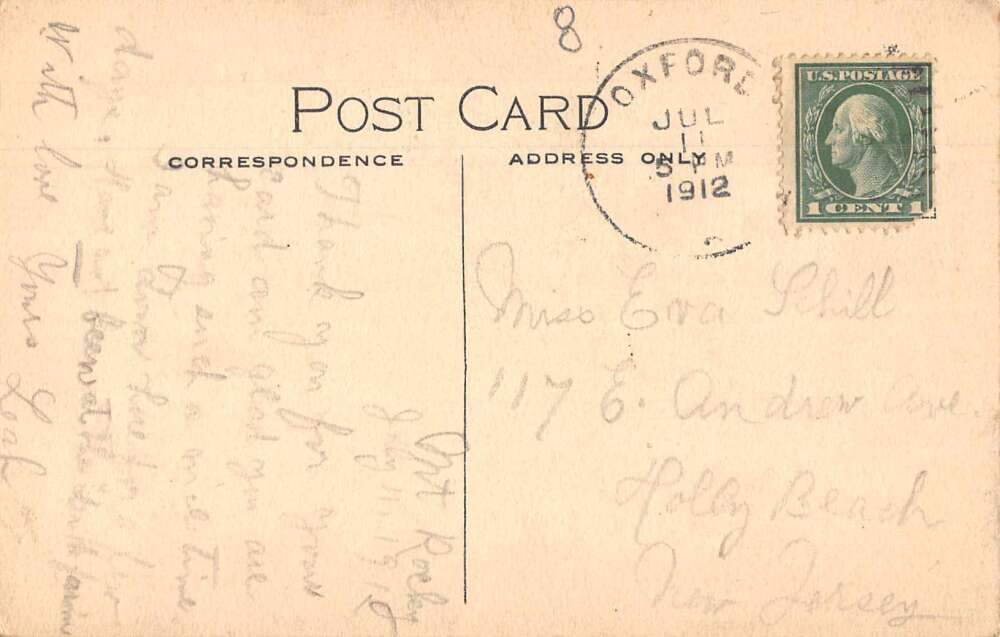 8
POST CARD
CORRESPONDENCE
ADDRESS ONLY
OXFORD
JUL
11
5 PM
1912
U.S. POSTAGE
1 CENT 1
Miss Eva Schill
117 E. Andrew Ave.
Holly Beach
New Jersey
Mt Rocky
July 11, 1912
Thank you for your
card am glad you are
having such a nice time
I am down here for a few
days,
With love Yours Leah